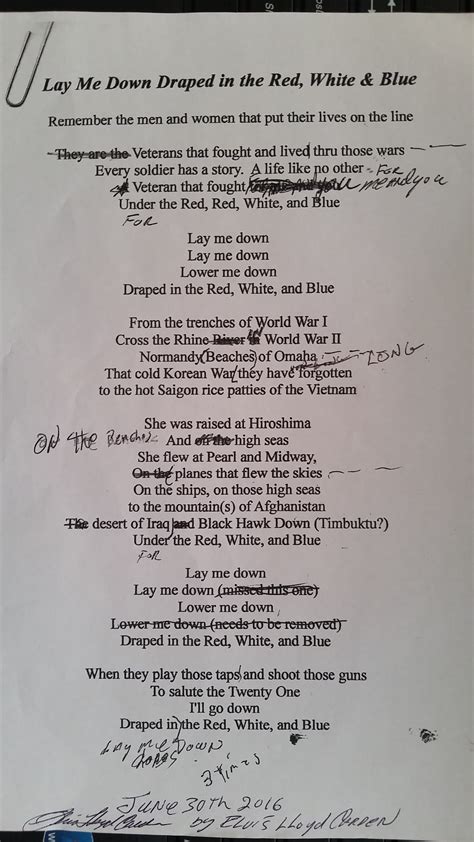 Lay Me Down Draped in the Red, White & Blue
Remember the men and women that put their lives on the line
They are the Veterans that fought and lived thru those wars
Every soldier has a story. A life like no other - FOR
A Veteran that fought me and you
Under the Red, Red, White, and Blue
FOR
Lay me down
Lay me down
Lower me down
Draped in the Red, White, and Blue
From the trenches of World War I
Cross the Rhine River in World War II
Normandy (Beaches) of Omaha
LONG
That cold Korean War they have forgotten
to the hot Saigon rice patties of the Vietnam
She was raised at Hiroshima
ON the Beaches And off the high seas
She flew at Pearl and Midway,
On the planes that flew the skies
On the ships, on those high seas
to the mountain(s) of Afghanistan
The desert of Iraq and Black Hawk Down (Timbuktu?)
Under the Red, White, and Blue
FOR
Lay me down
Lay me down (missed this one)
Lower me down
Lower me down (needs to be removed)
Draped in the Red, White, and Blue
When they play those taps and shoot those guns
To salute the Twenty One
I'll go down
Draped in the Red, White, and Blue
Lay me Down
3 times
June 30th 2016
by Elvis Lloyd